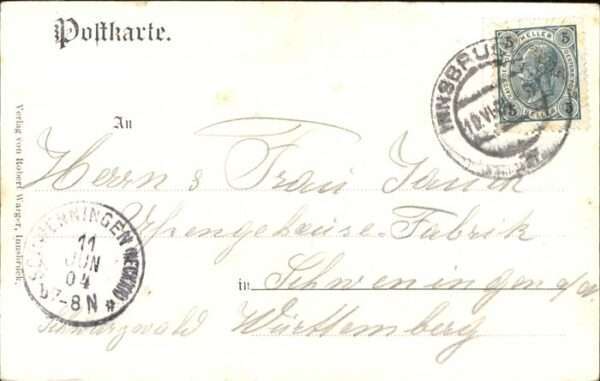 Postkarte.
5 HELLER 5
5 HELLER 5
INNSBRU
10 VI
An
Herrn & Frau Jauch
Uhrengehäuse-Fabrik
in Schwenningen a/N.
Schwarzwald Württemberg
SCHWENNINGEN (NECKAR)
11
JUN
04
7-8 N
Verlag von Robert Warger, Innsbruck.